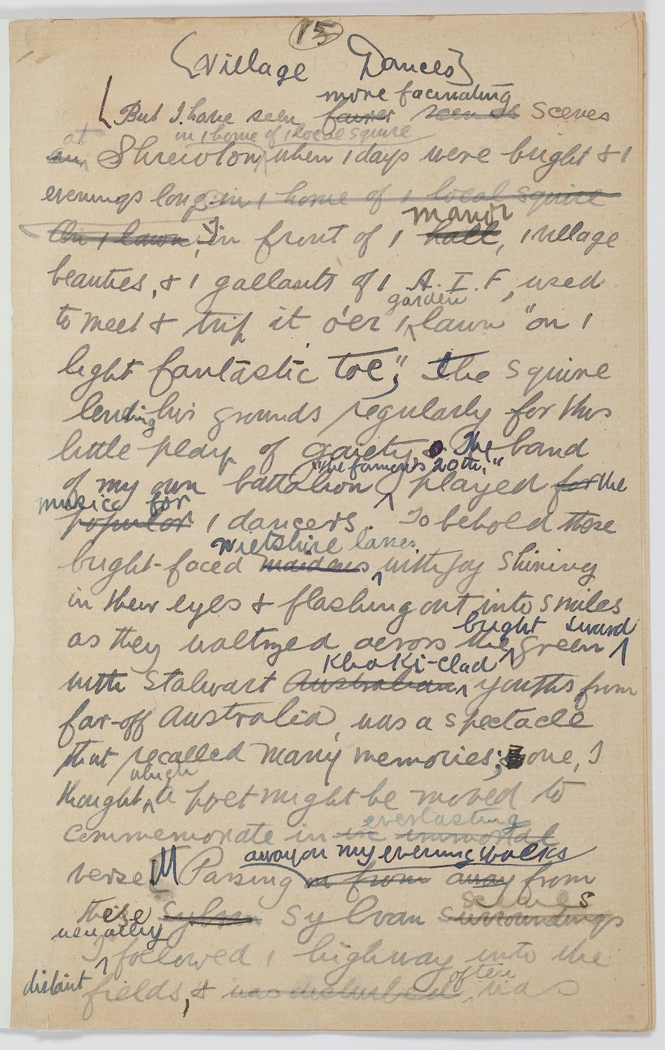 15
{Village Dances}
more facinating
[But I have seen fairer scenes Scenes
at in 1 home of 1 local squire
Shrewton, when 1 days were bright & 1
evenings long in 1 home of 1 local squire
On 1 lawn, In front of 1 hall, 1 village
manor
beauties, & 1 gallants of 1 A.I.F, used
garden
to meet & trip it o'er 1 lawn "on 1
light fantastic toe"; the Squire
lending his grounds regularly for this
little play of gaiety. The band
"the famous 20th."
of my own battalion played for the
music for
popular 1 dancers. To behold those
Wiltshire lasses
bright-faced maidens with joy shining
in their eyes & flashing out into smiles
bright sward
as they waltzed across the green
Khaki-clad
with Stalwart Australian youths from
far-off Australia, was a spectacle
that recalled many memories; one, I
which
thought a poet might be moved to
everlasting
commemorate in immortal
away on my evening walks
verse. Passing from away from
scenes
These Sylvan Sylvan surroundings
usually
I followed 1 highway into the
distant often
fields, & was disturbed was